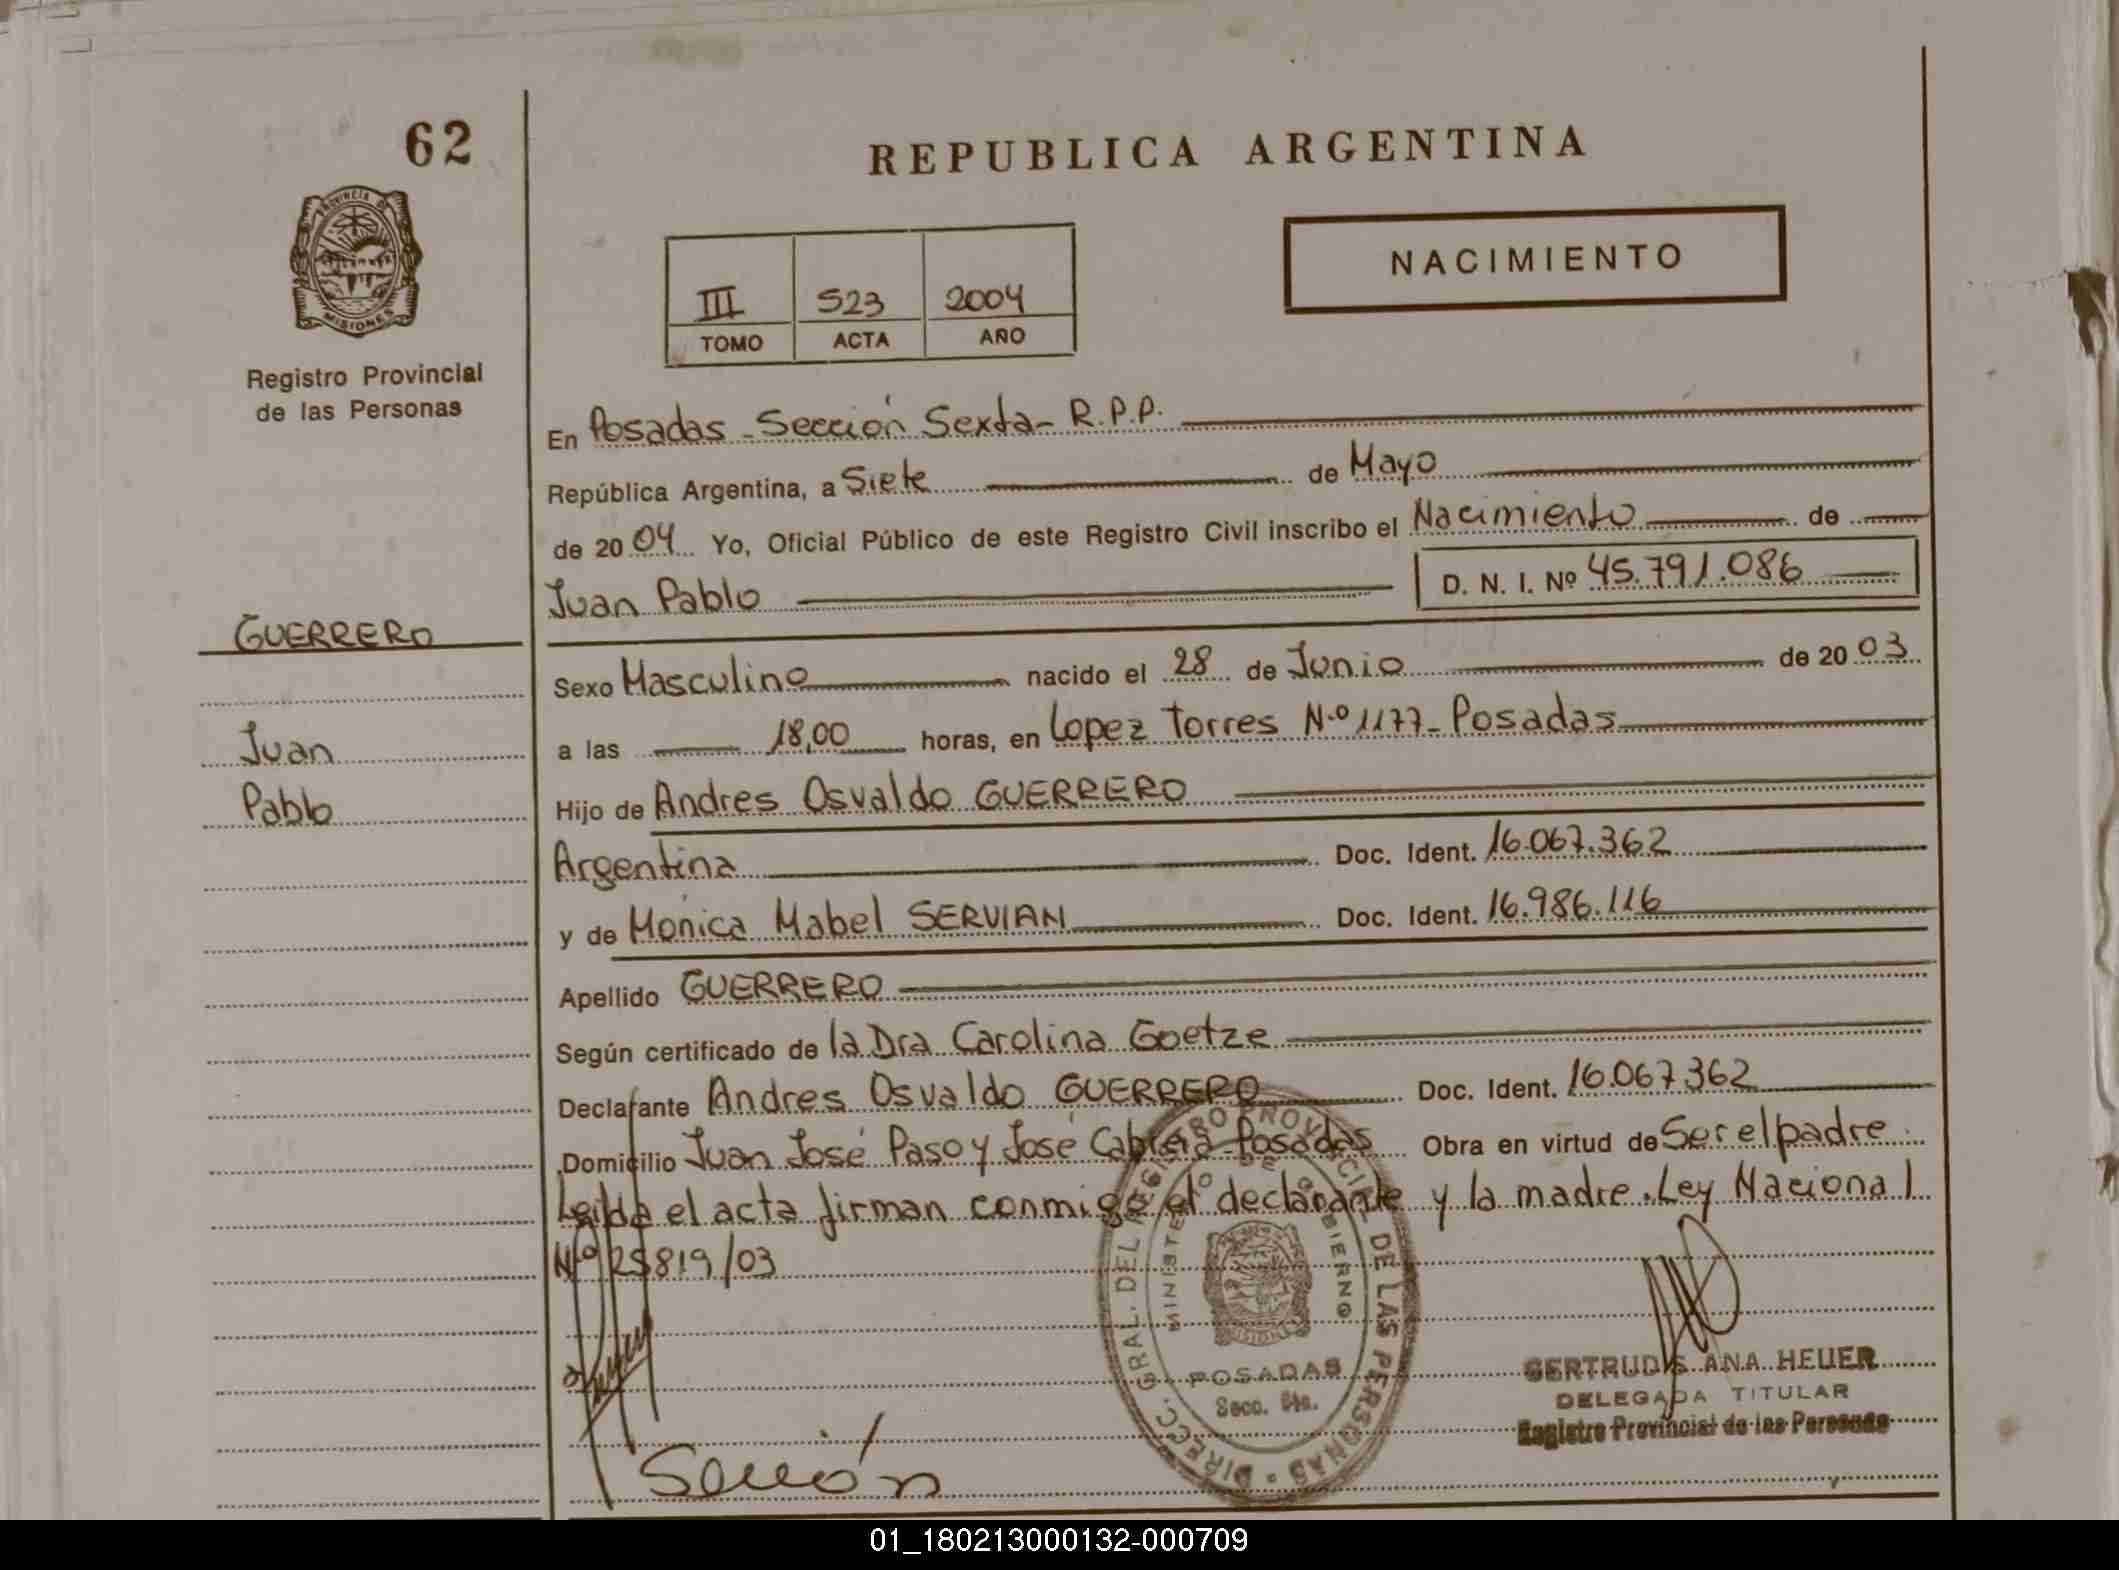 62
REPUBLICA ARGENTINA
PROVINCIA DE
MISIONES
Registro Provincial
de las Personas
III 523 2004
TOMO ACTA AÑO
NACIMIENTO
En Posadas - Sección Sexta - R.P.P.
República Argentina, a Siete de Mayo
de 2004 Yo, Oficial Público de este Registro Civil inscribo el Nacimiento de
Juan Pablo D. N. I. Nº 45.791.086
GUERRERO
Juan
Pablo
Sexo Masculino nacido el 28 de Junio de 2003
a las 18,00 horas, en Lopez Torres N.º 1177 - Posadas
Hijo de Andres Osvaldo GUERRERO
Argentina Doc. Ident. 16.067.362
y de Mónica Mabel SERVIAN Doc. Ident. 16.986.116
Apellido GUERRERO
Según certificado de la Dra Carolina Goetze
Declarante Andres Osvaldo GUERRERO Doc. Ident. 16.067.362
Domicilio Juan José Paso y José Cabrera - Posadas Obra en virtud de Ser el padre.
Leída el acta firman conmigo el declarante y la madre. Ley Nacional
Nº 25819/03
DIRECC. GRAL. DEL REGISTRO PROVINCIAL DE LAS PERSONAS
MINISTERIO DE GOBIERNO
MISIONES
POSADAS
Secc. 6ta.
GERTRUDIS ANA HEUER
DELEGADA TITULAR
Registro Provincial de las Personas
01_180213000132-000709